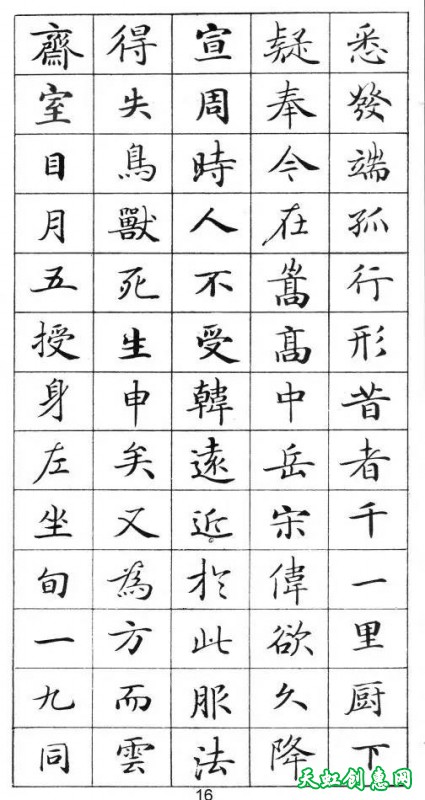 悉發端孤行形昔者千一里厨下
疑奉今在嵩高中岳宋偉欲久降
宣周時人不受韓遠近於此服法
得失鳥獸死生申矣又為方而雲
齋室目月五授身左坐旬一九同
16
天虹創意网